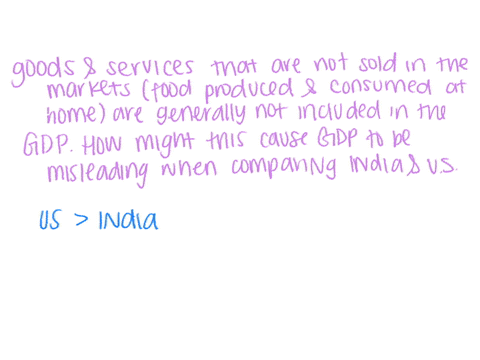 goods & services that are not sold in the
markets (food produced & consumed at
home) are generally not included in the
GDP. How might this cause GDP to be
misleading when comparing India & U.S.
US > India